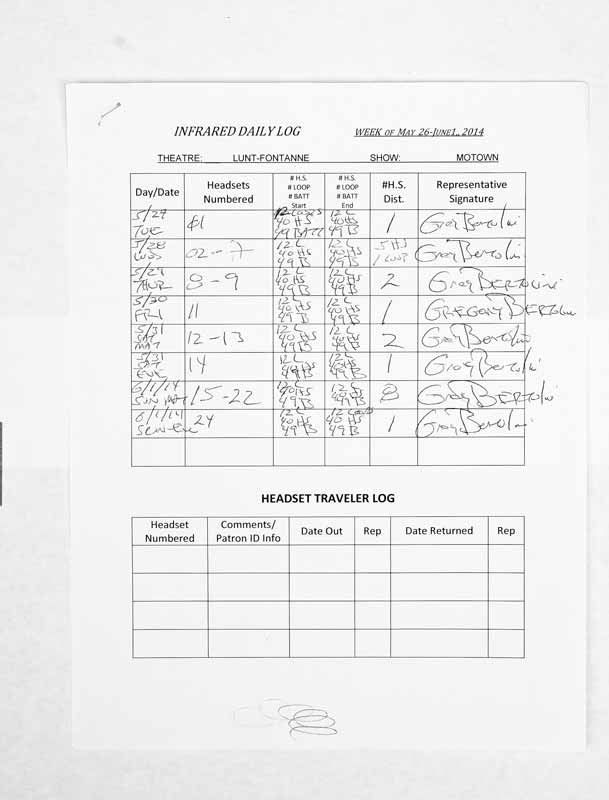 INFRARED DAILY LOG WEEK OF MAY 26-JUNE1,, 2014
THEATRE: LUNT-FONTANNE SHOW: MOTOWN
Day/Date Headsets Numbered # H.S. # LOOP # BATT Start # H.S. # LOOP # BATT End #H.S. Dist. Representative Signature
5/27 TUE 12 Cases 40 HS 49 BATT 12 C 40HS 49 B 1 Greg Bertolini
5/28 02-7 12 C 40HS 49B 12 C 40HS 49B 5 HS 1 LOOP Greg Bertolini
5/29 THUR 8-9 12 C 40HS 49B 12 C 40HS 49B 2 Greg BERTOLINI
5/30 FRI 11 12 C 40HS 49B 12 C 40HS 49B 1 GREGORY BERTOLINI
5/31 SAT MAT 12-13 12 C 40HS 49B 12 C 40HS 49B 2 Greg Bertolini
5/31 SAT EVE 14 12 C 40HS 49B 12 C 40HS 49B 1 Greg Bertolini
6/1/14 SUN MAT 15-22 12 C 40HS 49B 12 C 40HS 49B 8 Greg BERTOLINI
6/1/14 SUN-EVE 24 12 C 40HS 49B 12 40HS 49B 1 Greg Bertolini
HEADSET TRAVELER LOG
Headset Numbered Comments/ Patron ID Info Date Out Rep Date Returned Rep